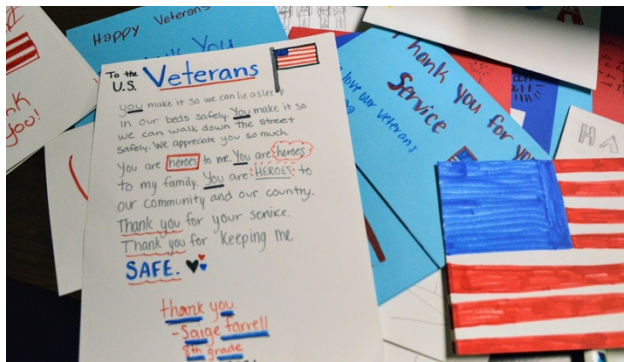 To the
U.S. Veterans
you make it so we can lie asleep
in our beds safely. You make it so
we can walk down the street
safely. We appreciate you so much
You are heroes to me. You are heroes
to my family. You are HEROES to
our community and our country.
Thank you for your service.
Thank you for keeping me
SAFE.
thank you
-Saige Farrell
8th grade
Happy Veterans
Thank You
Thank you for you
Service
love our veterans
you!
HA